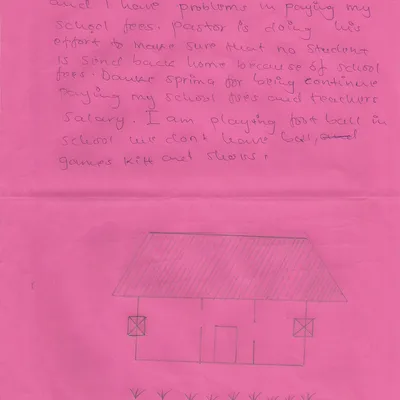 and I have problems in paying my
school fees. Pastor is doing his
effort to make sure that no student
is send back home because of school
fees. Dawne spring for being continue
paying my school fees and teachers
salary. I am playing foot ball in
school we don't have ball, and
games kitt and shoes.